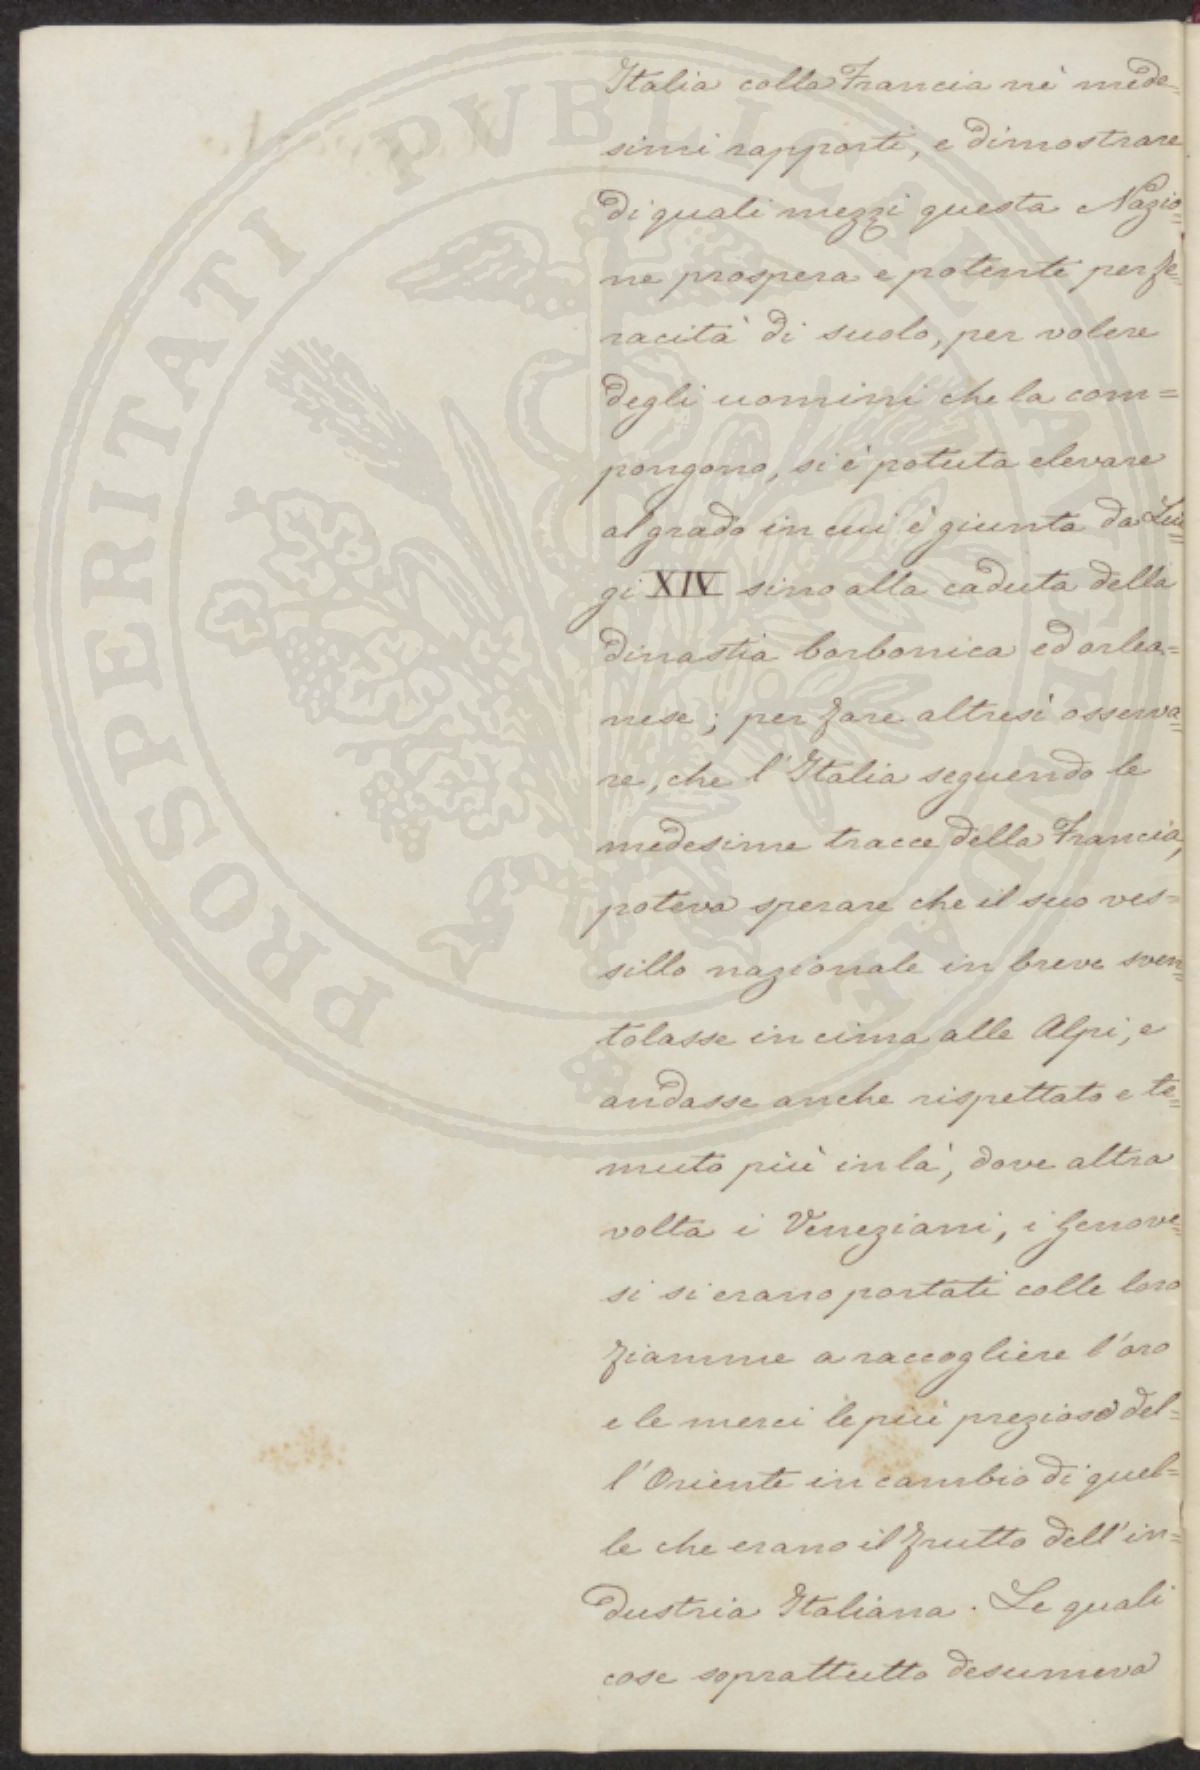 Italia colla Francia nè mede-
simi rapporti, e dimostrare
di quali mezzi questa Nazio=
ne prospera e potente per fe=
racità di suolo, per volere
degli uomini che la com=
pongono, si è potuta elevare
al grado in cui è giunta da Lui=
gi XIV sino alla caduta della
dinastia borbonica ed orlea=
nese; per fare altresì osserva=
re, che l'Italia seguendo le
medesime tracce della Francia,
poteva sperare che il suo ves=
sillo nazionale in breve sven=
tolasse in cima alle Alpi, e
andasse anche rispettato e te=
muto più in là, dove altra
volta i Veneziani, i Genove=
si si erano portati colle loro
fiamme a raccogliere l'oro
e le merci le più preziose del=
l'Oriente in cambio di quel=
le che erano il frutto dell'in=
dustria Italiana. Le quali
cose soprattutto desumeva
PROSPERITATI PVBLICAE AVGENDAE